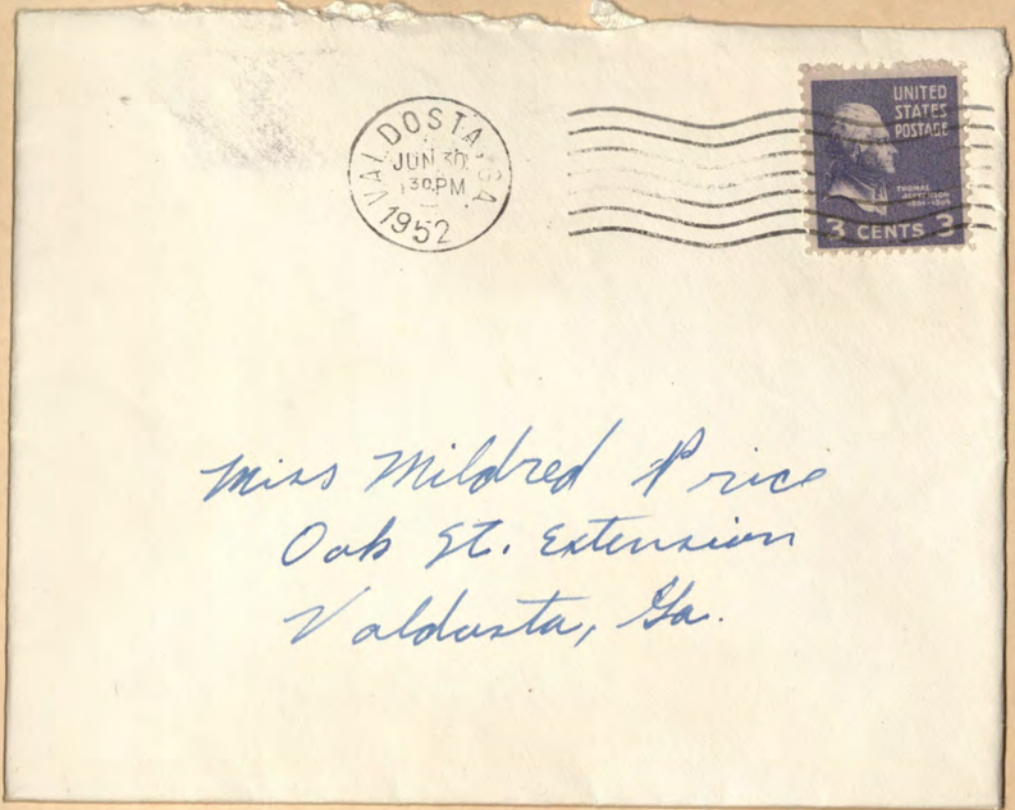 VALDOSTA, GA.
JUN 30
30 PM
1952
UNITED
STATES
POSTAGE
THOMAS
JEFFERSON
3 CENTS 3
Miss Mildred Price
Oak St. Extension
Valdosta, Ga.